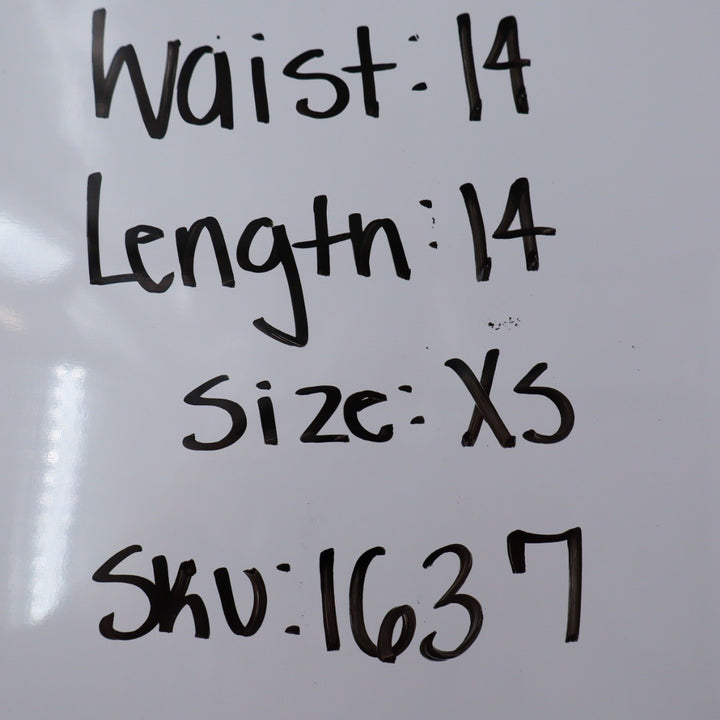 Waist: 14
Length: 14
Size: XS
SKU: 1637